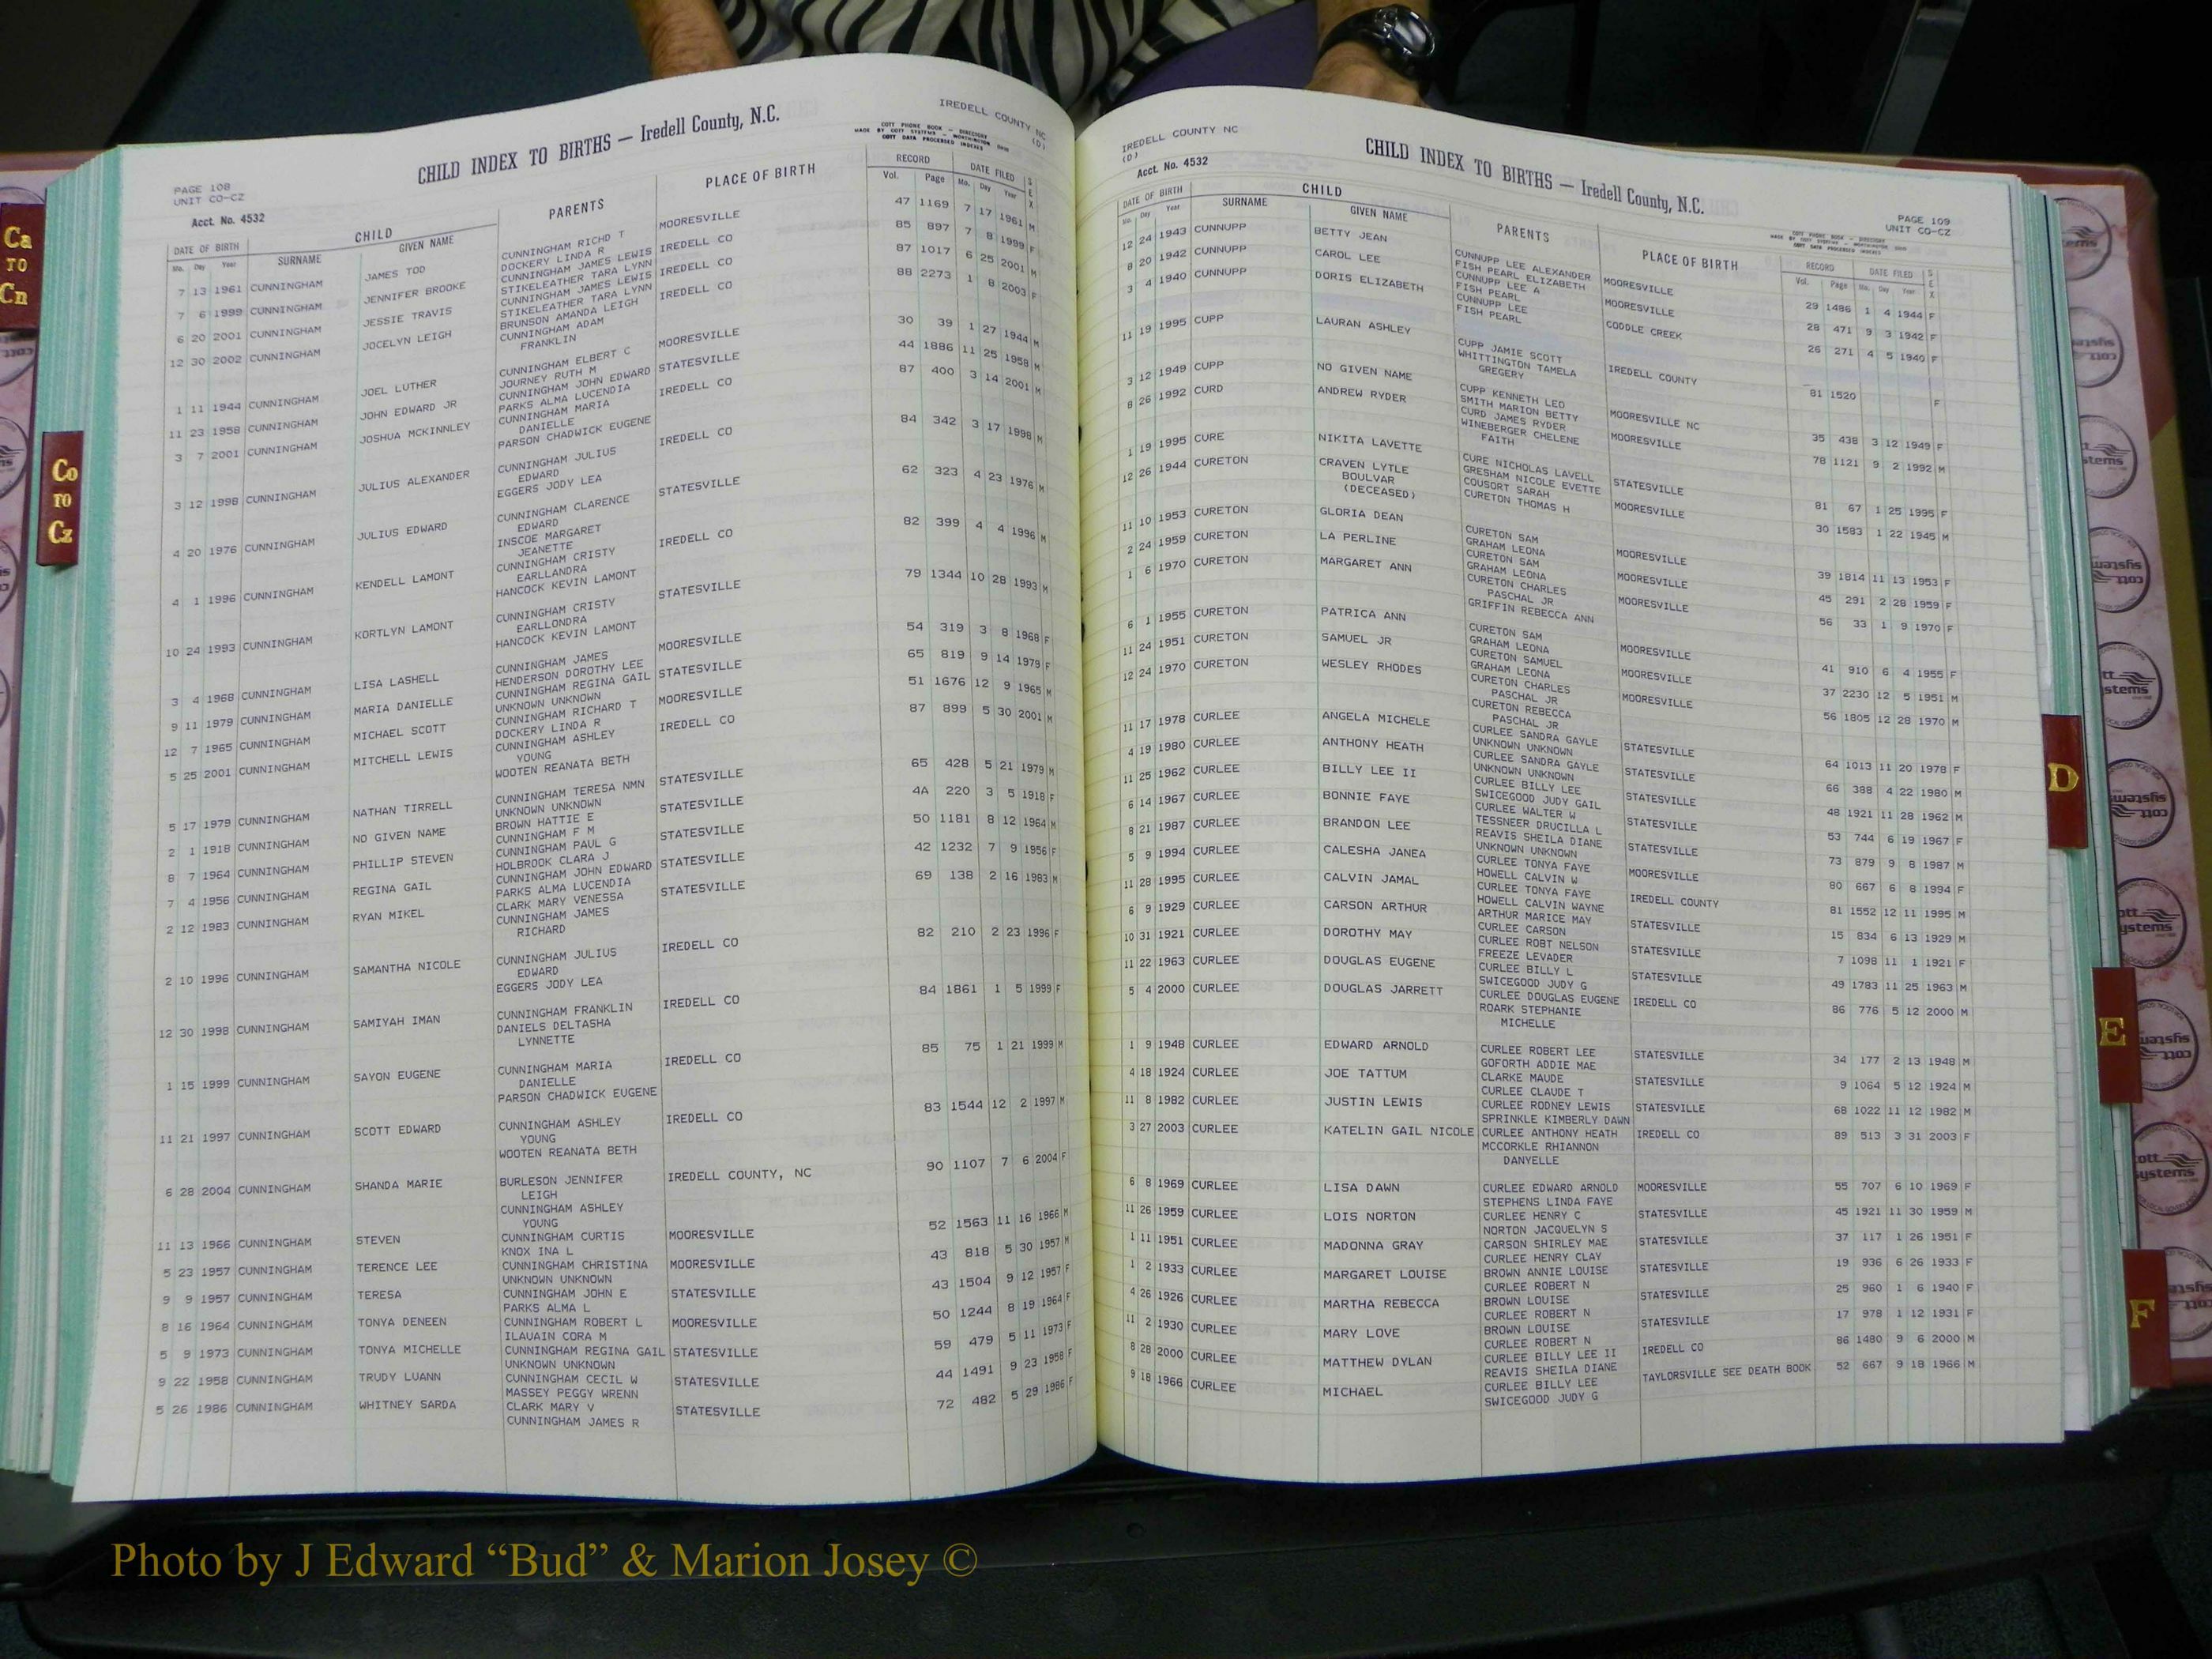 CHILD INDEX TO BIRTHS — Iredell County, N.C.
IREDELL COUNTY NC
(D)
COTT PHONE BOOK — DIRECTORY
MADE BY COTT SYSTEMS — WORTHINGTON OHIO
COTT DATA PROCESSED INDEXES
PAGE 108
UNIT CO-CZ
Acct. No. 4532
DATE OF BIRTH CHILD PARENTS PLACE OF BIRTH RECORD DATE FILED SEX
Mo. Day Year SURNAME GIVEN NAME Vol. Page Mo. Day Year
7 13 1961 CUNNINGHAM JAMES TOD CUNNINGHAM RICHD T MOORESVILLE 47 1169 7 17 1961 M
DOCKERY LINDA R
7 6 1999 CUNNINGHAM JENNIFER BROOKE CUNNINGHAM JAMES LEWIS IREDELL CO 85 897 7 8 1999 F
STIKELEATHER TARA LYNN
6 20 2001 CUNNINGHAM JESSIE TRAVIS CUNNINGHAM JAMES LEWIS IREDELL CO 87 1017 6 25 2001 M
STIKELEATHER TARA LYNN
12 30 2002 CUNNINGHAM JOCELYN LEIGH BRUNSON AMANDA LEIGH IREDELL CO 88 2273 1 8 2003 F
CUNNINGHAM ADAM
FRANKLIN
1 11 1944 CUNNINGHAM JOEL LUTHER CUNNINGHAM ELBERT C MOORESVILLE 30 39 1 27 1944 M
JOURNEY RUTH M
11 23 1958 CUNNINGHAM JOHN EDWARD JR CUNNINGHAM JOHN EDWARD STATESVILLE 44 1886 11 25 1958 M
PARKS ALMA LUCENDIA
3 7 2001 CUNNINGHAM JOSHUA MCKINNLEY CUNNINGHAM MARIA IREDELL CO 87 400 3 14 2001 M
DANIELLE
PARSON CHADWICK EUGENE
3 12 1998 CUNNINGHAM JULIUS ALEXANDER CUNNINGHAM JULIUS IREDELL CO 84 342 3 17 1998 M
EDWARD
EGGERS JODY LEA
4 20 1976 CUNNINGHAM JULIUS EDWARD CUNNINGHAM CLARENCE STATESVILLE 62 323 4 23 1976 M
EDWARD
INSCOE MARGARET
JEANETTE
4 1 1996 CUNNINGHAM KENDELL LAMONT CUNNINGHAM CRISTY IREDELL CO 82 399 4 4 1996 M
EARLLANDRA
HANCOCK KEVIN LAMONT
10 24 1993 CUNNINGHAM KORTLYN LAMONT CUNNINGHAM CRISTY STATESVILLE 79 1344 10 28 1993 M
EARLLONDRA
HANCOCK KEVIN LAMONT
3 4 1968 CUNNINGHAM LISA LASHELL CUNNINGHAM JAMES MOORESVILLE 54 319 3 8 1968 F
HENDERSON DOROTHY LEE
9 11 1979 CUNNINGHAM MARIA DANIELLE CUNNINGHAM REGINA GAIL STATESVILLE 65 819 9 14 1979 F
UNKNOWN UNKNOWN
12 7 1965 CUNNINGHAM MICHAEL SCOTT CUNNINGHAM RICHARD T MOORESVILLE 51 1676 12 9 1965 M
DOCKERY LINDA R
5 25 2001 CUNNINGHAM MITCHELL LEWIS CUNNINGHAM ASHLEY IREDELL CO 87 899 5 30 2001 M
YOUNG
WOOTEN REANATA BETH
5 17 1979 CUNNINGHAM NATHAN TIRRELL CUNNINGHAM TERESA NMN STATESVILLE 65 428 5 21 1979 M
UNKNOWN UNKNOWN
2 1 1918 CUNNINGHAM NO GIVEN NAME BROWN HATTIE E STATESVILLE 4A 220 3 5 1918 F
CUNNINGHAM F M
8 7 1964 CUNNINGHAM PHILLIP STEVEN CUNNINGHAM PAUL G STATESVILLE 50 1181 8 12 1964 M
HOLBROOK CLARA J
7 4 1956 CUNNINGHAM REGINA GAIL CUNNINGHAM JOHN EDWARD STATESVILLE 42 1232 7 9 1956 F
PARKS ALMA LUCENDIA
2 12 1983 CUNNINGHAM RYAN MIKEL CLARK MARY VENESSA STATESVILLE 69 138 2 16 1983 M
CUNNINGHAM JAMES
RICHARD
2 10 1996 CUNNINGHAM SAMANTHA NICOLE CUNNINGHAM JULIUS IREDELL CO 82 210 2 23 1996 F
EDWARD
EGGERS JODY LEA
12 30 1998 CUNNINGHAM SAMIYAH IMAN CUNNINGHAM FRANKLIN IREDELL CO 84 1861 1 5 1999 F
DANIELS DELTASHA
LYNNETTE
1 15 1999 CUNNINGHAM SAYON EUGENE CUNNINGHAM MARIA IREDELL CO 85 75 1 21 1999 M
DANIELLE
PARSON CHADWICK EUGENE
11 21 1997 CUNNINGHAM SCOTT EDWARD CUNNINGHAM ASHLEY IREDELL CO 83 1544 12 2 1997 M
YOUNG
WOOTEN REANATA BETH
6 28 2004 CUNNINGHAM SHANDA MARIE BURLESON JENNIFER IREDELL COUNTY, NC 90 1107 7 6 2004 F
LEIGH
CUNNINGHAM ASHLEY
YOUNG
11 13 1966 CUNNINGHAM STEVEN CUNNINGHAM CURTIS MOORESVILLE 52 1563 11 16 1966 M
KNOX INA L
5 23 1957 CUNNINGHAM TERENCE LEE CUNNINGHAM CHRISTINA MOORESVILLE 43 818 5 30 1957 M
UNKNOWN UNKNOWN
9 9 1957 CUNNINGHAM TERESA CUNNINGHAM JOHN E STATESVILLE 43 1504 9 12 1957 F
PARKS ALMA L
8 16 1964 CUNNINGHAM TONYA DENEEN CUNNINGHAM ROBERT L MOORESVILLE 50 1244 8 19 1964 F
ILAUAIN CORA M
5 9 1973 CUNNINGHAM TONYA MICHELLE CUNNINGHAM REGINA GAIL STATESVILLE 59 479 5 11 1973 F
UNKNOWN UNKNOWN
9 22 1958 CUNNINGHAM TRUDY LUANN CUNNINGHAM CECIL W STATESVILLE 44 1491 9 23 1958 F
MASSEY PEGGY WRENN
5 26 1986 CUNNINGHAM WHITNEY SARDA CLARK MARY V STATESVILLE 72 482 5 29 1986 F
CUNNINGHAM JAMES R
IREDELL COUNTY NC
(D)
Acct. No. 4532
CHILD INDEX TO BIRTHS — Iredell County, N.C.
PAGE 109
UNIT CO-CZ
COTT PHONE BOOK — DIRECTORY
MADE BY COTT SYSTEMS — WORTHINGTON OHIO
COTT DATA PROCESSED INDEXES
DATE OF BIRTH CHILD PARENTS PLACE OF BIRTH RECORD DATE FILED SEX
Mo. Day Year SURNAME GIVEN NAME Vol. Page Mo. Day Year
12 24 1943 CUNNUPP BETTY JEAN CUNNUPP LEE ALEXANDER MOORESVILLE 29 1486 1 4 1944 F
FISH PEARL ELIZABETH
8 20 1942 CUNNUPP CAROL LEE CUNNUPP LEE A MOORESVILLE 28 471 9 3 1942 F
FISH PEARL
3 4 1940 CUNNUPP DORIS ELIZABETH CUNNUPP LEE CODDLE CREEK 26 271 4 5 1940 F
FISH PEARL
11 19 1995 CUPP LAURAN ASHLEY CUPP JAMIE SCOTT IREDELL COUNTY 81 1520 F
WHITTINGTON TAMELA
GREGERY
3 12 1949 CUPP NO GIVEN NAME CUPP KENNETH LEO MOORESVILLE NC 35 438 3 12 1949 F
SMITH MARION BETTY
8 26 1992 CURD ANDREW RYDER CURD JAMES RYDER MOORESVILLE 78 1121 9 2 1992 M
WINEBERGER CHELENE
FAITH
1 19 1995 CURE NIKITA LAVETTE CURE NICHOLAS LAVELL STATESVILLE 81 67 1 25 1995 F
GRESHAM NICOLE EVETTE
12 26 1944 CURETON CRAVEN LYTLE COUSORT SARAH MOORESVILLE 30 1583 1 22 1945 M
BOULVAR CURETON THOMAS H
(DECEASED)
11 10 1953 CURETON GLORIA DEAN CURETON SAM MOORESVILLE 39 1814 11 13 1953 F
GRAHAM LEONA
2 24 1959 CURETON LA PERLINE CURETON SAM MOORESVILLE 45 291 2 28 1959 F
GRAHAM LEONA
1 6 1970 CURETON MARGARET ANN CURETON CHARLES MOORESVILLE 56 33 1 9 1970 F
PASCHAL JR
GRIFFIN REBECCA ANN
6 1 1955 CURETON PATRICA ANN CURETON SAM MOORESVILLE 41 910 6 4 1955 F
GRAHAM LEONA
11 24 1951 CURETON SAMUEL JR CURETON SAMUEL MOORESVILLE 37 2230 12 5 1951 M
GRAHAM LEONA
12 24 1970 CURETON WESLEY RHODES CURETON CHARLES MOORESVILLE 56 1805 12 28 1970 M
PASCHAL JR
CURETON REBECCA
PASCHAL JR
11 17 1978 CURLEE ANGELA MICHELE CURLEE SANDRA GAYLE STATESVILLE 64 1013 11 20 1978 F
UNKNOWN UNKNOWN
4 19 1980 CURLEE ANTHONY HEATH CURLEE SANDRA GAYLE STATESVILLE 66 388 4 22 1980 M
UNKNOWN UNKNOWN
11 25 1962 CURLEE BILLY LEE II CURLEE BILLY LEE STATESVILLE 48 1921 11 28 1962 M
SWICEGOOD JUDY GAIL
6 14 1967 CURLEE BONNIE FAYE CURLEE WALTER W STATESVILLE 53 744 6 19 1967 F
TESSNEER DRUCILLA L
8 21 1987 CURLEE BRANDON LEE REAVIS SHEILA DIANE STATESVILLE 73 879 9 8 1987 M
UNKNOWN UNKNOWN
5 9 1994 CURLEE CALESHA JANEA CURLEE TONYA FAYE MOORESVILLE 80 667 6 8 1994 F
HOWELL CALVIN W
11 28 1995 CURLEE CALVIN JAMAL CURLEE TONYA FAYE IREDELL COUNTY 81 1552 12 11 1995 M
HOWELL CALVIN WAYNE
6 9 1929 CURLEE CARSON ARTHUR ARTHUR MARICE MAY STATESVILLE 15 834 6 13 1929 M
CURLEE CARSON
10 31 1921 CURLEE DOROTHY MAY CURLEE ROBT NELSON STATESVILLE 7 1098 11 1 1921 F
FREEZE LEVADER
11 22 1963 CURLEE DOUGLAS EUGENE CURLEE BILLY L STATESVILLE 49 1783 11 25 1963 M
SWICEGOOD JUDY G
5 4 2000 CURLEE DOUGLAS JARRETT CURLEE DOUGLAS EUGENE IREDELL CO 86 776 5 12 2000 M
ROARK STEPHANIE
MICHELLE
1 9 1948 CURLEE EDWARD ARNOLD CURLEE ROBERT LEE STATESVILLE 34 177 2 13 1948 M
GOFORTH ADDIE MAE
4 18 1924 CURLEE JOE TATTUM CLARKE MAUDE STATESVILLE 9 1064 5 12 1924 M
CURLEE CLAUDE T
11 8 1982 CURLEE JUSTIN LEWIS CURLEE RODNEY LEWIS STATESVILLE 68 1022 11 12 1982 M
SPRINKLE KIMBERLY DAWN
3 27 2003 CURLEE KATELIN GAIL NICOLE CURLEE ANTHONY HEATH IREDELL CO 89 513 3 31 2003 F
MCCORKLE RHIANNON
DANYELLE
6 8 1969 CURLEE LISA DAWN CURLEE EDWARD ARNOLD MOORESVILLE 55 707 6 10 1969 F
STEPHENS LINDA FAYE
11 26 1959 CURLEE LOIS NORTON CURLEE HENRY C STATESVILLE 45 1921 11 30 1959 M
NORTON JACQUELYN S
1 11 1951 CURLEE MADONNA GRAY CARSON SHIRLEY MAE STATESVILLE 37 117 1 26 1951 F
CURLEE HENRY CLAY
1 2 1933 CURLEE MARGARET LOUISE BROWN ANNIE LOUISE STATESVILLE 19 936 6 26 1933 F
CURLEE ROBERT N
4 26 1926 CURLEE MARTHA REBECCA BROWN LOUISE STATESVILLE 25 960 1 6 1940 F
CURLEE ROBERT N
11 2 1930 CURLEE MARY LOVE BROWN LOUISE STATESVILLE 17 978 1 12 1931 F
CURLEE ROBERT N
8 28 2000 CURLEE MATTHEW DYLAN CURLEE BILLY LEE II IREDELL CO 86 1480 9 6 2000 M
REAVIS SHEILA DIANE
9 18 1966 CURLEE MICHAEL CURLEE BILLY LEE TAYLORSVILLE SEE DEATH BOOK 52 667 9 18 1966 M
SWICEGOOD JUDY G
Ca
TO
Cn
Co
TO
Cz
D
E
F
Photo by J Edward “Bud” & Marion Josey ©